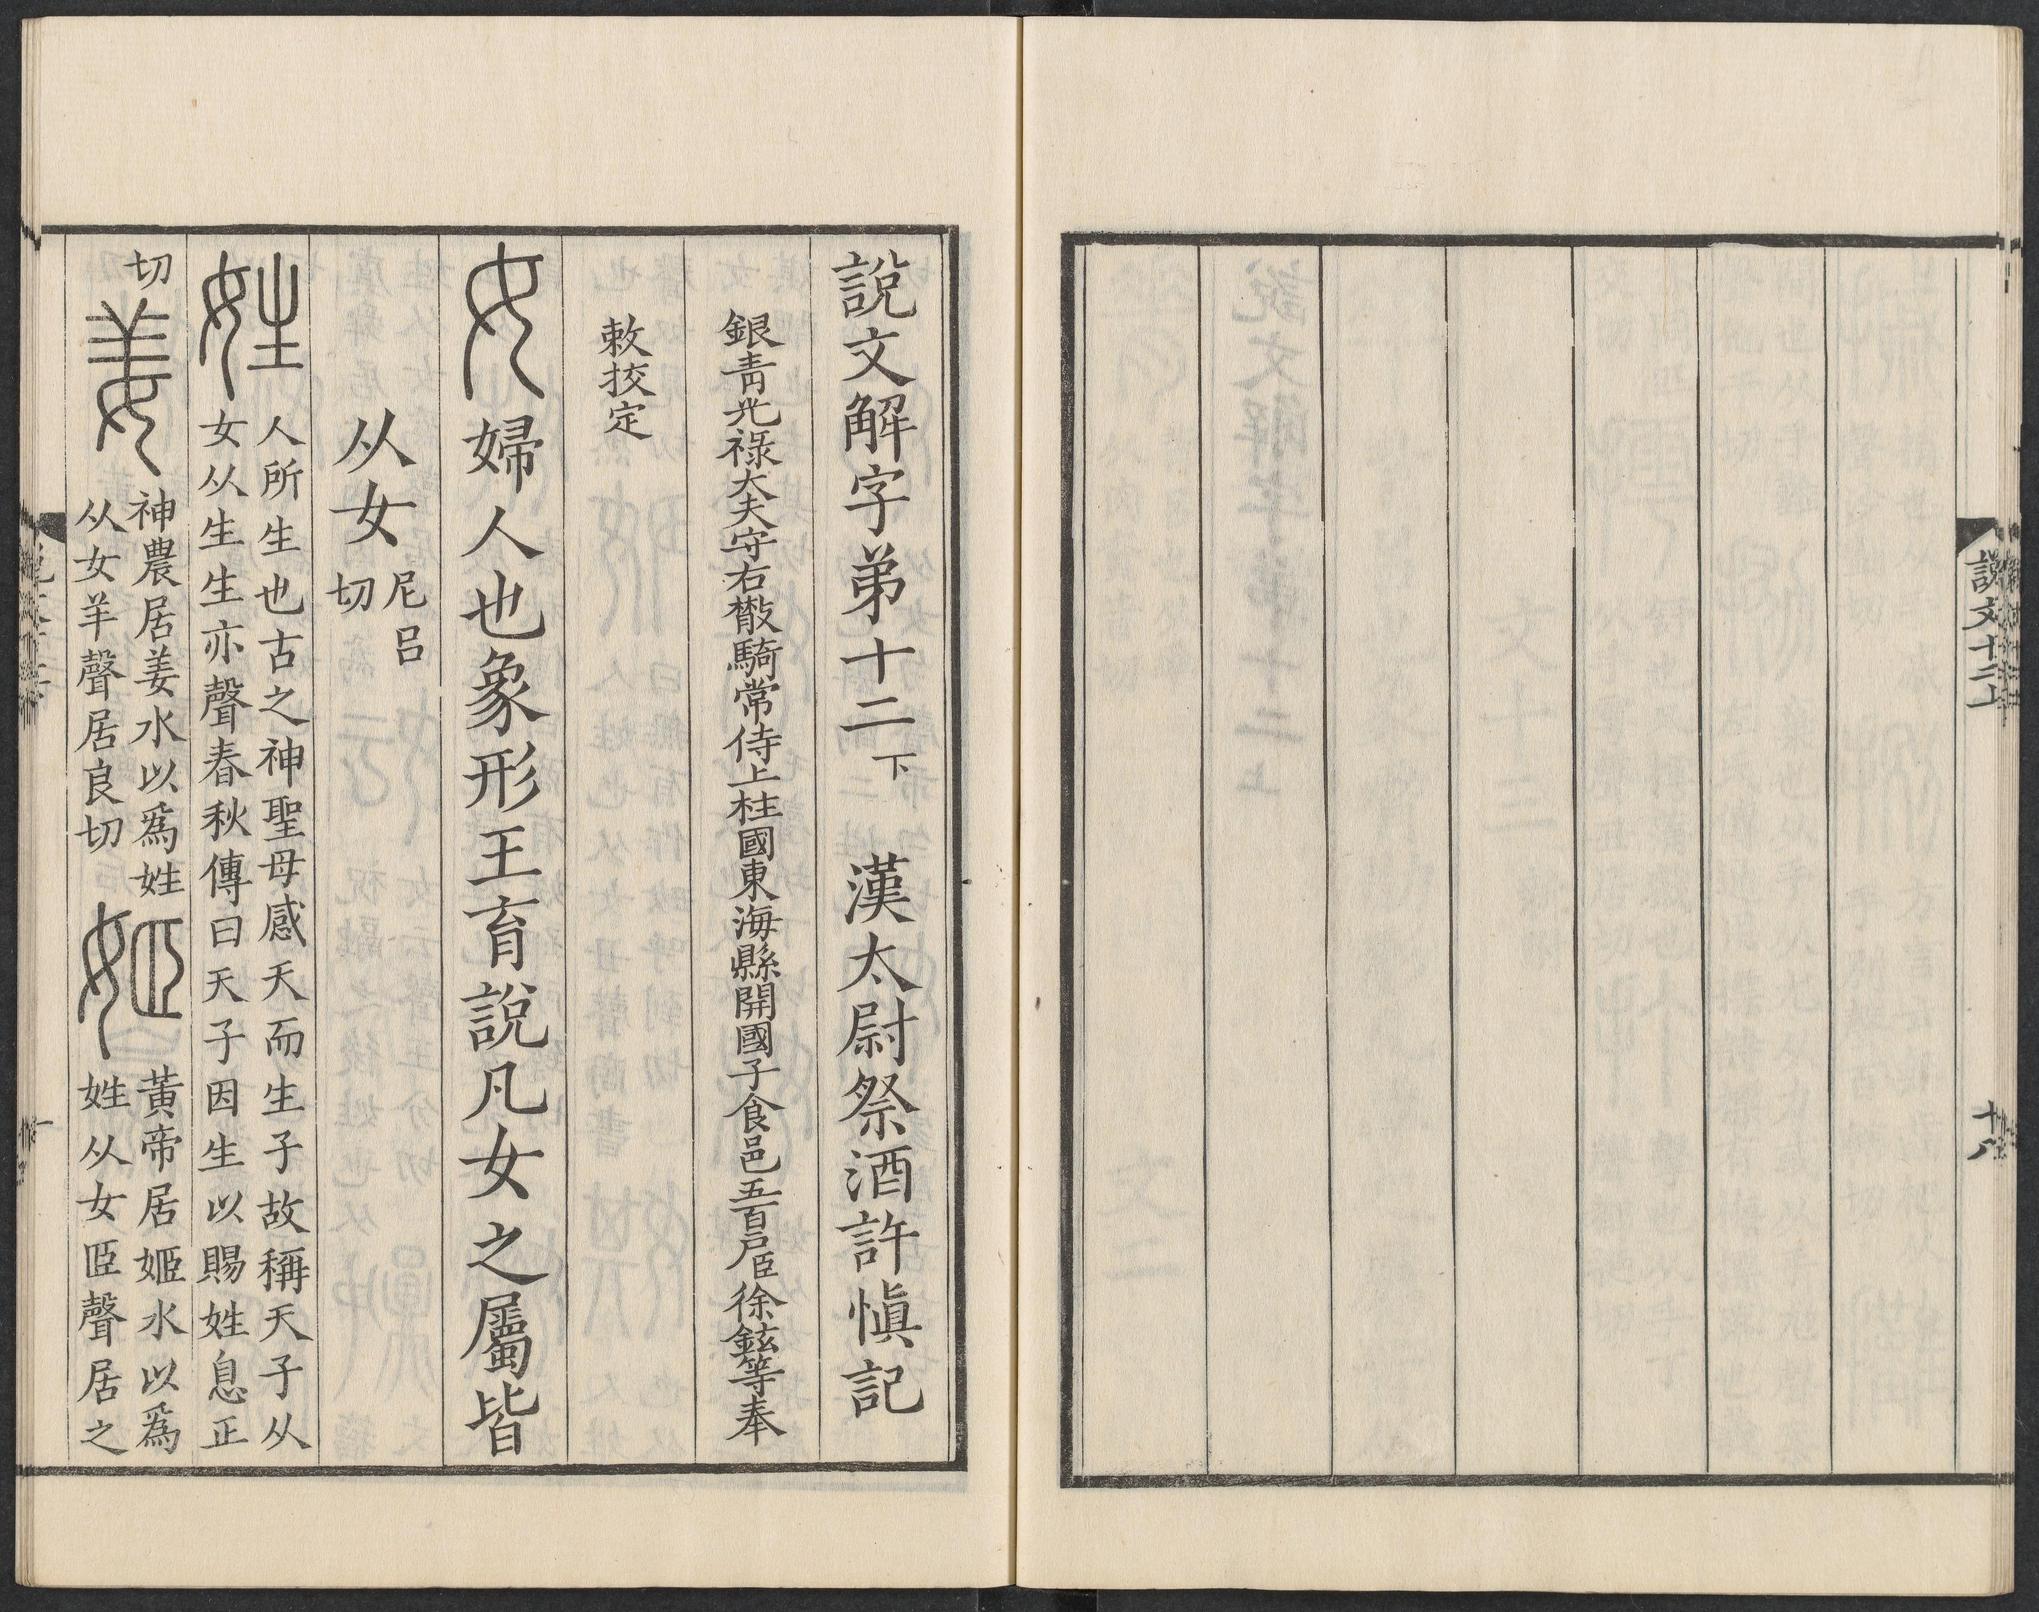 說文十二上
十八
說文解字弟十二下 漢太尉祭酒許愼記
銀青光祿大夫守右散騎常侍上柱國東海縣開國子食邑五百戶臣徐鉉等奉
敕挍定
女婦人也象形王育說凡女之屬皆
从女尼呂
切
姓人所生也古之神聖母感天而生子故稱天子从
女从生生亦聲春秋傳曰天子因生以賜姓息正
切姜神農居姜水以爲姓
从女羊聲居良切
姬黃帝居姬水以爲
姓从女𦣝聲居之